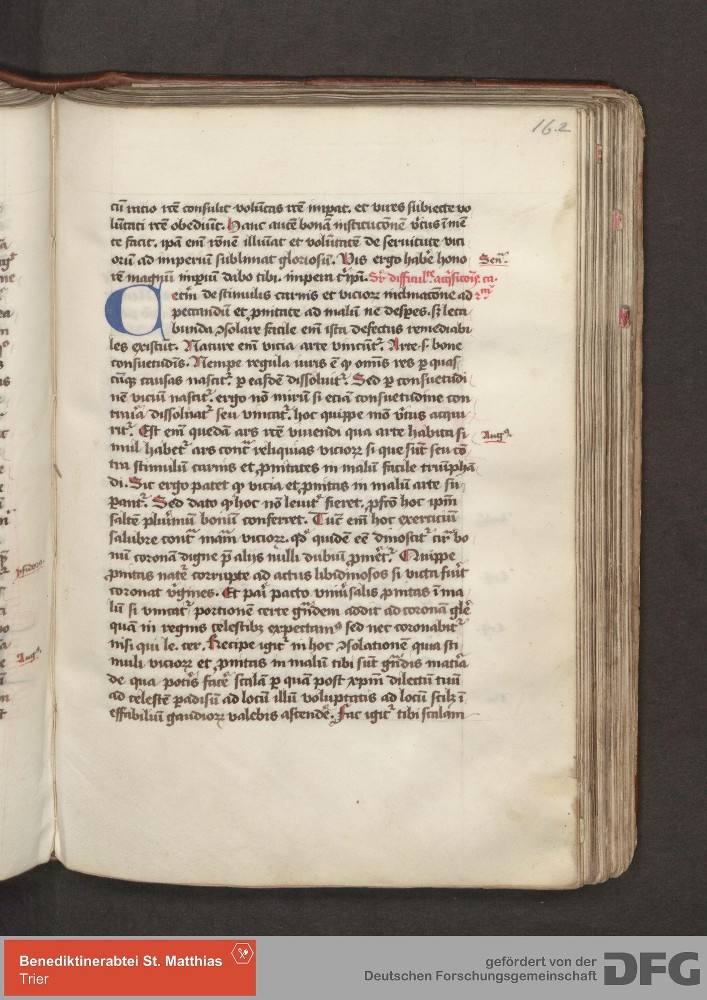 16.2
cū ratio rc̄e consulit volūtas rc̄e imꝑat. et vires subiecte vo
lūtati rc̄e obediūt. Hanc autē bonā institucōnē v̓tus ī mē
te facit. ip̄ā em̄ rōnē illuīat et volūtatē de seruitute vici
orū ad imperiū sublimat gloriosū. Vis ergo hab̓e hono
rē magnū imꝑiū dabo tibi. impera t̓ ip̄i.
Seń.
Cetm̄ de stimulis carnis et vicioꝝ inclinacōne ad
peccandū et ꝓnitate ad malū ne despes. sꝫ leta
bunda ↄsolare facile em̄ ista defectus remediabi
les existūt. Nature em̄ vicia arte vincūt̉. Arte .s. bone
consuetudīs. Nempe regula iuris ē ꝙ om̄is res ꝑ quas
cūqꝫ causas nascit̉. ꝑ easdē dissoluit̉. Sed ꝑ consuetudi
nē viciū nascit̉. ergo nō mirū si eciā consuetudine con
traria dissoluat̉ seu vincat̉. hoc quippe mō v̓tus acqui
rit̉. Est em̄ quedā ars rc̄e viuendi qua arte habita si
Augꝰ.
mul habet̉ ars cont̉ reliquias vicioꝝ si que sūt seu cō
tra stimulū carnis et ꝓnitates in malū facile triūphā
di. Sic ergo patet ꝙ vicia et ꝓnitas in malū arte su
ꝑant̉. Sed dato ꝙ hoc nō leuit̓ fieret. ꝓfco̅ hoc ip̄m
saltē plurimū bonū conferret. Tūc em̄ hoc exerciciū
salubre cont̉ mām̄ vicioꝝ. qd̓ quidē eē dinoscit̉ circa bo
nū coronā digne p̄ alijs nulli dubiū ꝓmēt̉. Quippe
ꝓnitas nat̉e corrupte ad actus libidinosos si victa fuīt
coronat v̓gines. Et pari pacto vniu̓salis ꝓnitas ī ma
lū si vincat̉ portionem certe grandem addit ad coronā gl̓e
quam in regnis celestibꝫ expectamꝰ sed nec coronabit̉
nisi qui le. cer. Recipe igit̉ in hoc ↄsolationē quia sti
muli vicioꝝ et ꝓnitas in malū tibi sūt grādis mat̓ia
de qua pot̓is fac̓e scalā ꝑ quā post xp̄m dilectū tuū
ad celestē ꝑadisū ad locū illū voluptatis ad locū scilꝫ ī
effabiliū gaudioꝝ valebis ascende̓. Fac igit̉ tibi scalam
Isidorꝰ
Augꝰ.
Benediktinerabtei St. Matthias
Trier
gefördert von der
Deutschen Forschungsgemeinschaft
DFG